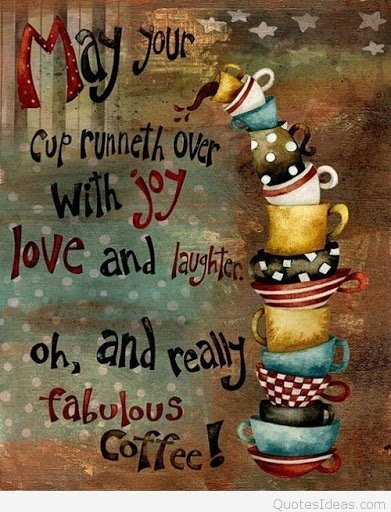 May your
cup runneth over
with joy
love and laughter.
oh, and really
fabulous
coffee!
QuotesIdeas.com